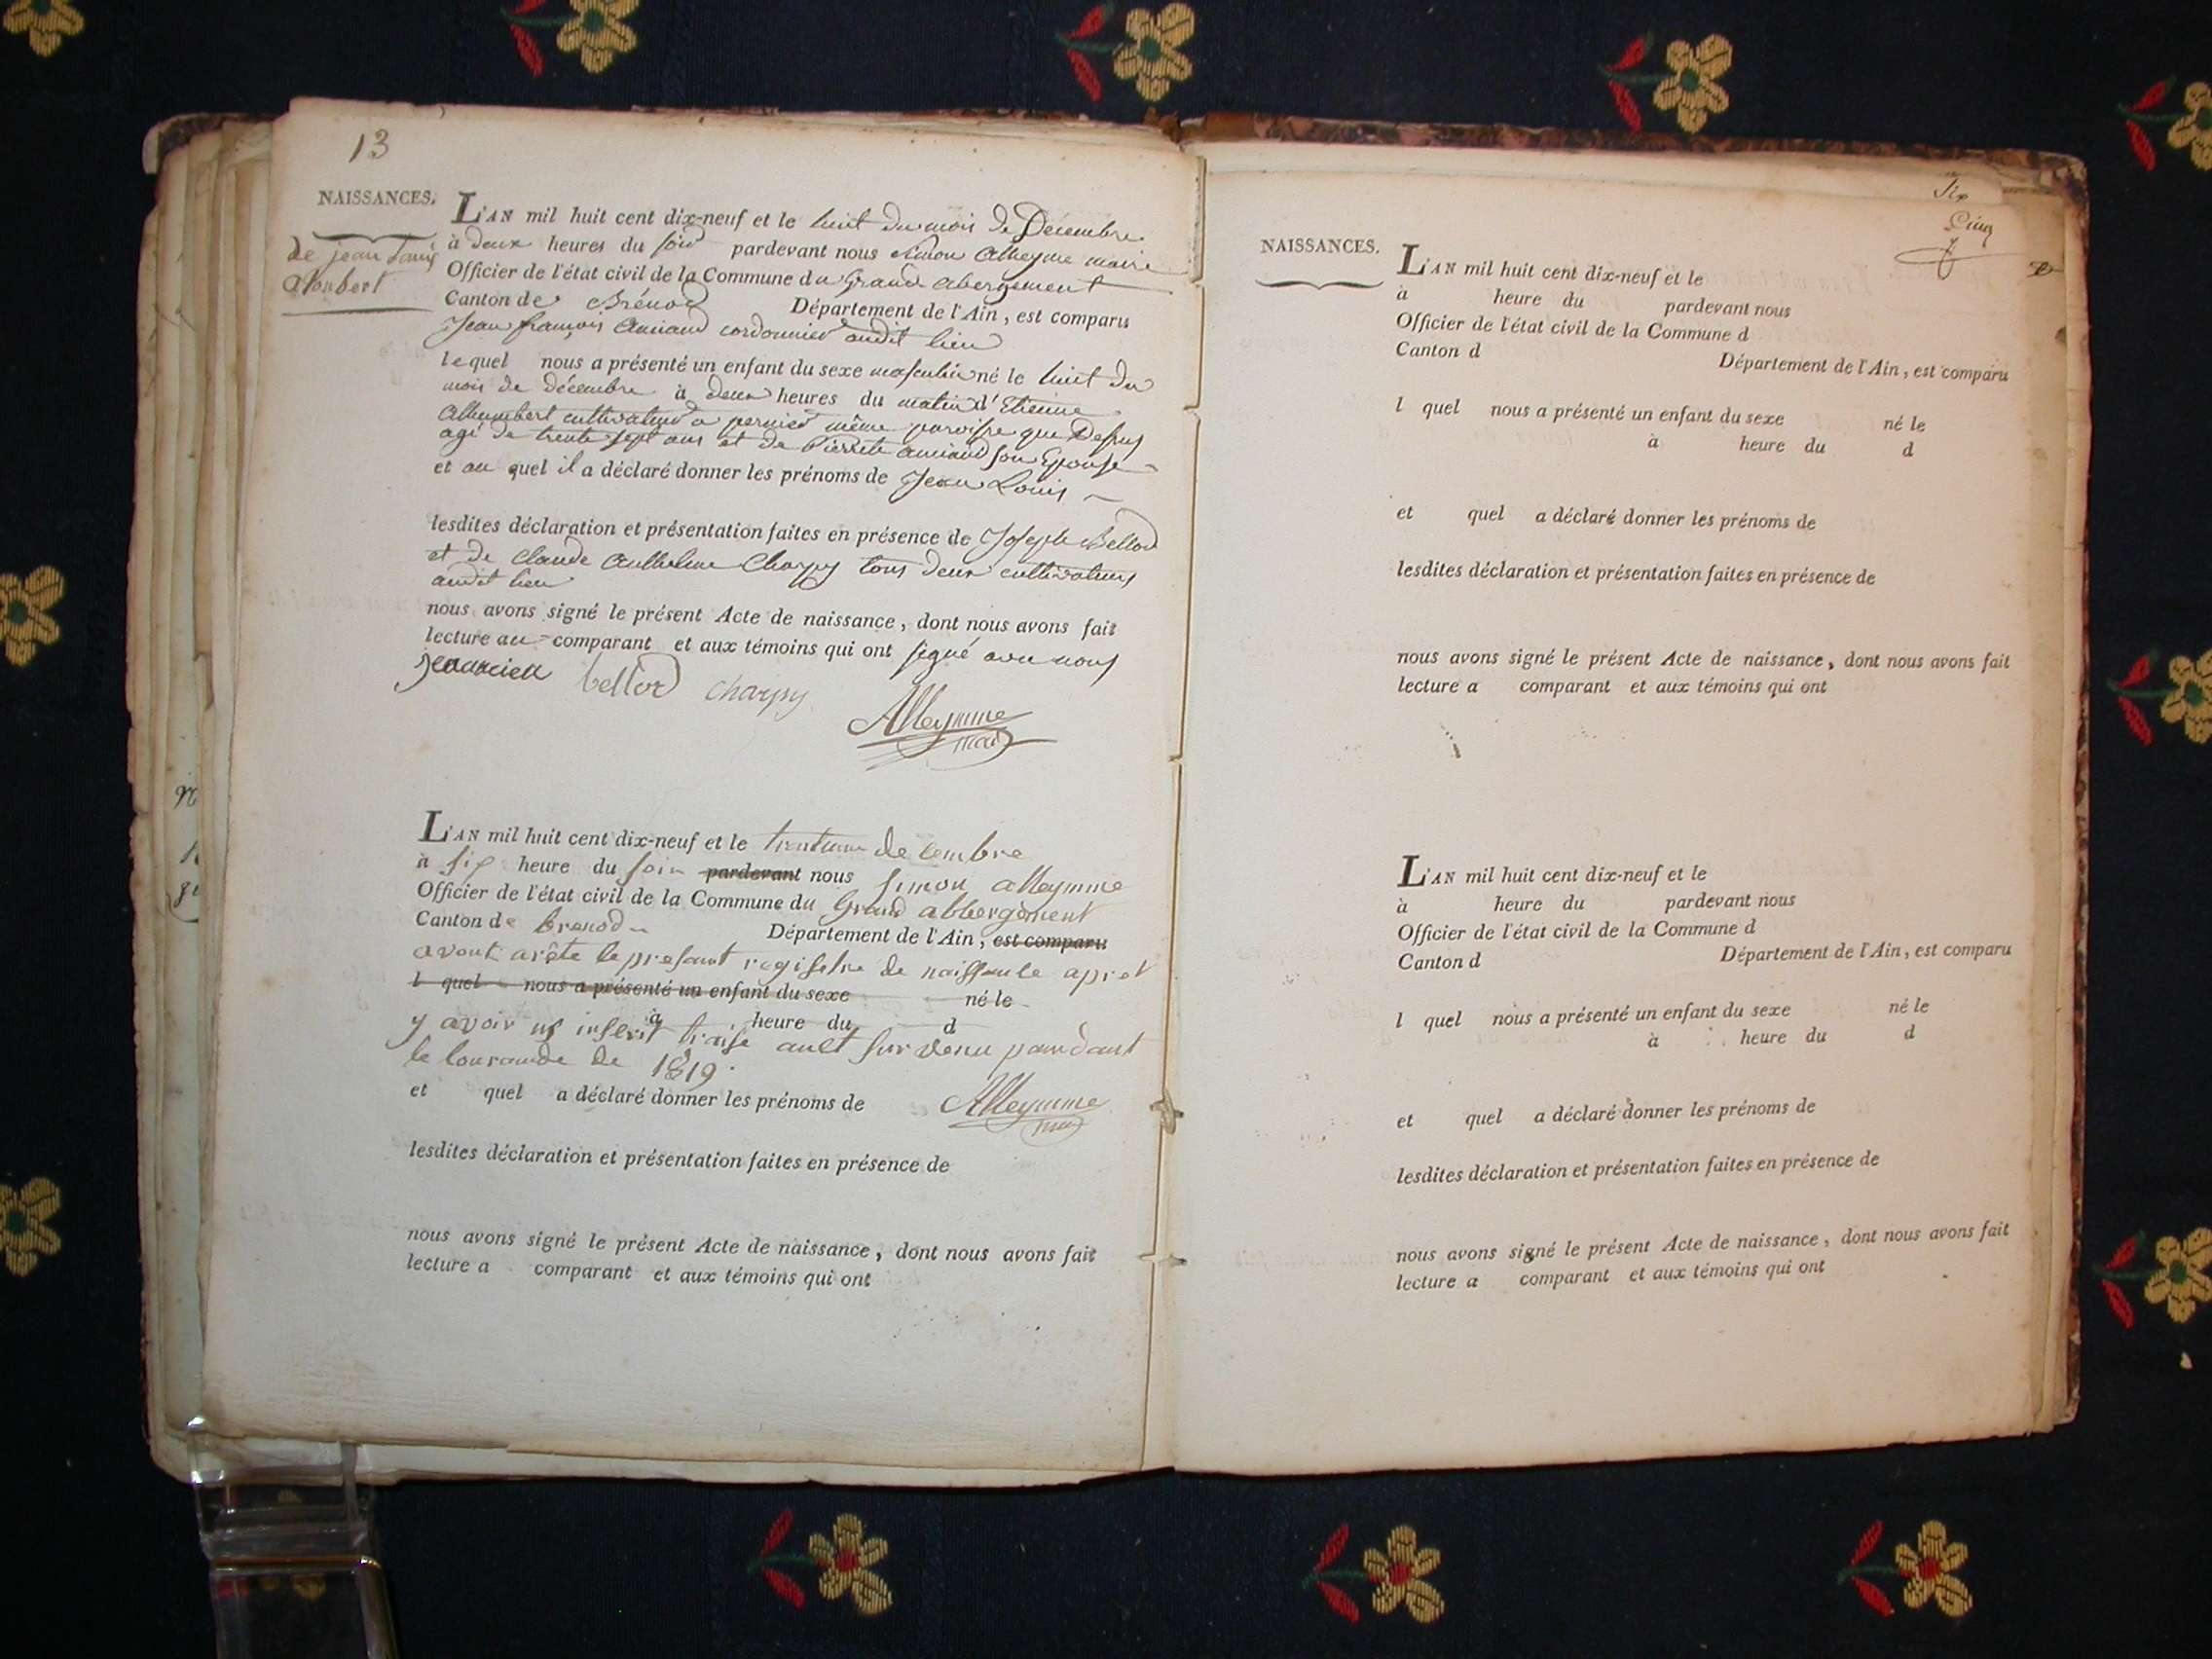 13
NAISSANCES.
de jean Louis
alonbert
L'AN mil huit cent dix-neuf et le huit du mois de Décembre
à deux heures du soir pardevant nous Simon Alleyme maire
Officier de l'état civil de la Commune du Grand abergement
Canton de Brénod Département de l'Ain, est comparu
Jean françois Anciand cordonnier audit lieu
lequel nous a présenté un enfant du sexe masculin né le huit du
mois de décembre à deux heures du matin d'Etienne
cultivateur a même paroisse que Dessus
agé de trente sept ans et de Pierrete anciand son Epouse
et au quel il a déclaré donner les prénoms de Jean Louis
lesdites déclaration et présentation faites en présence de Joseph Bellod
et de Claude Anthelme Charpy tous deux cultivateurs
audit lieu
nous avons signé le présent Acte de naissance, dont nous avons fait
lecture au comparant et aux témoins qui ont signé avec nous
bellod charpy
Alleymme
maire
L'AN mil huit cent dix-neuf et le trentume decembre
à six heure du soir pardevant nous simon alleymme
Officier de l'état civil de la Commune du Grand abbergement
Canton de brenod Département de l'Ain, est comparu
avont arête le presant registre de naissance apret
l quel nous a présenté un enfant du sexe né le
à heure du d
y avoir inscrit traise ault survenu pandant
le lourande de 1819.
et quel a déclaré donner les prénoms de
Alleymme
maire
lesdites déclaration et présentation faites en présence de
nous avons signé le présent Acte de naissance, dont nous avons fait
lecture a comparant et aux témoins qui ont
Six
Cinq
NAISSANCES.
L'AN mil huit cent dix-neuf et le
à heure du pardevant nous
Officier de l'état civil de la Commune d
Canton d Département de l'Ain, est comparu
l quel nous a présenté un enfant du sexe né le
à heure du d
et quel a déclaré donner les prénoms de
lesdites déclaration et présentation faites en présence de
nous avons signé le présent Acte de naissance, dont nous avons fait
lecture a comparant et aux témoins qui ont
L'AN mil huit cent dix-neuf et le
à heure du pardevant nous
Officier de l'état civil de la Commune d
Canton d Département de l'Ain, est comparu
l quel nous a présenté un enfant du sexe né le
à heure du d
et quel a déclaré donner les prénoms de
lesdites déclaration et présentation faites en présence de
nous avons signé le présent Acte de naissance, dont nous avons fait
lecture a comparant et aux témoins qui ont